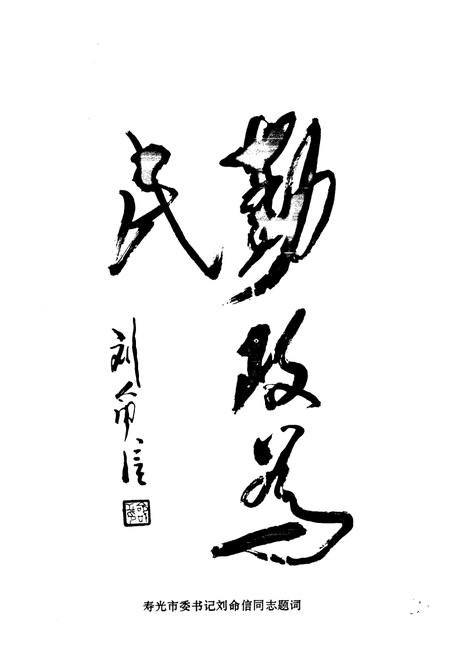 勤政为
民
刘命信
寿光市委书记刘命信同志题词